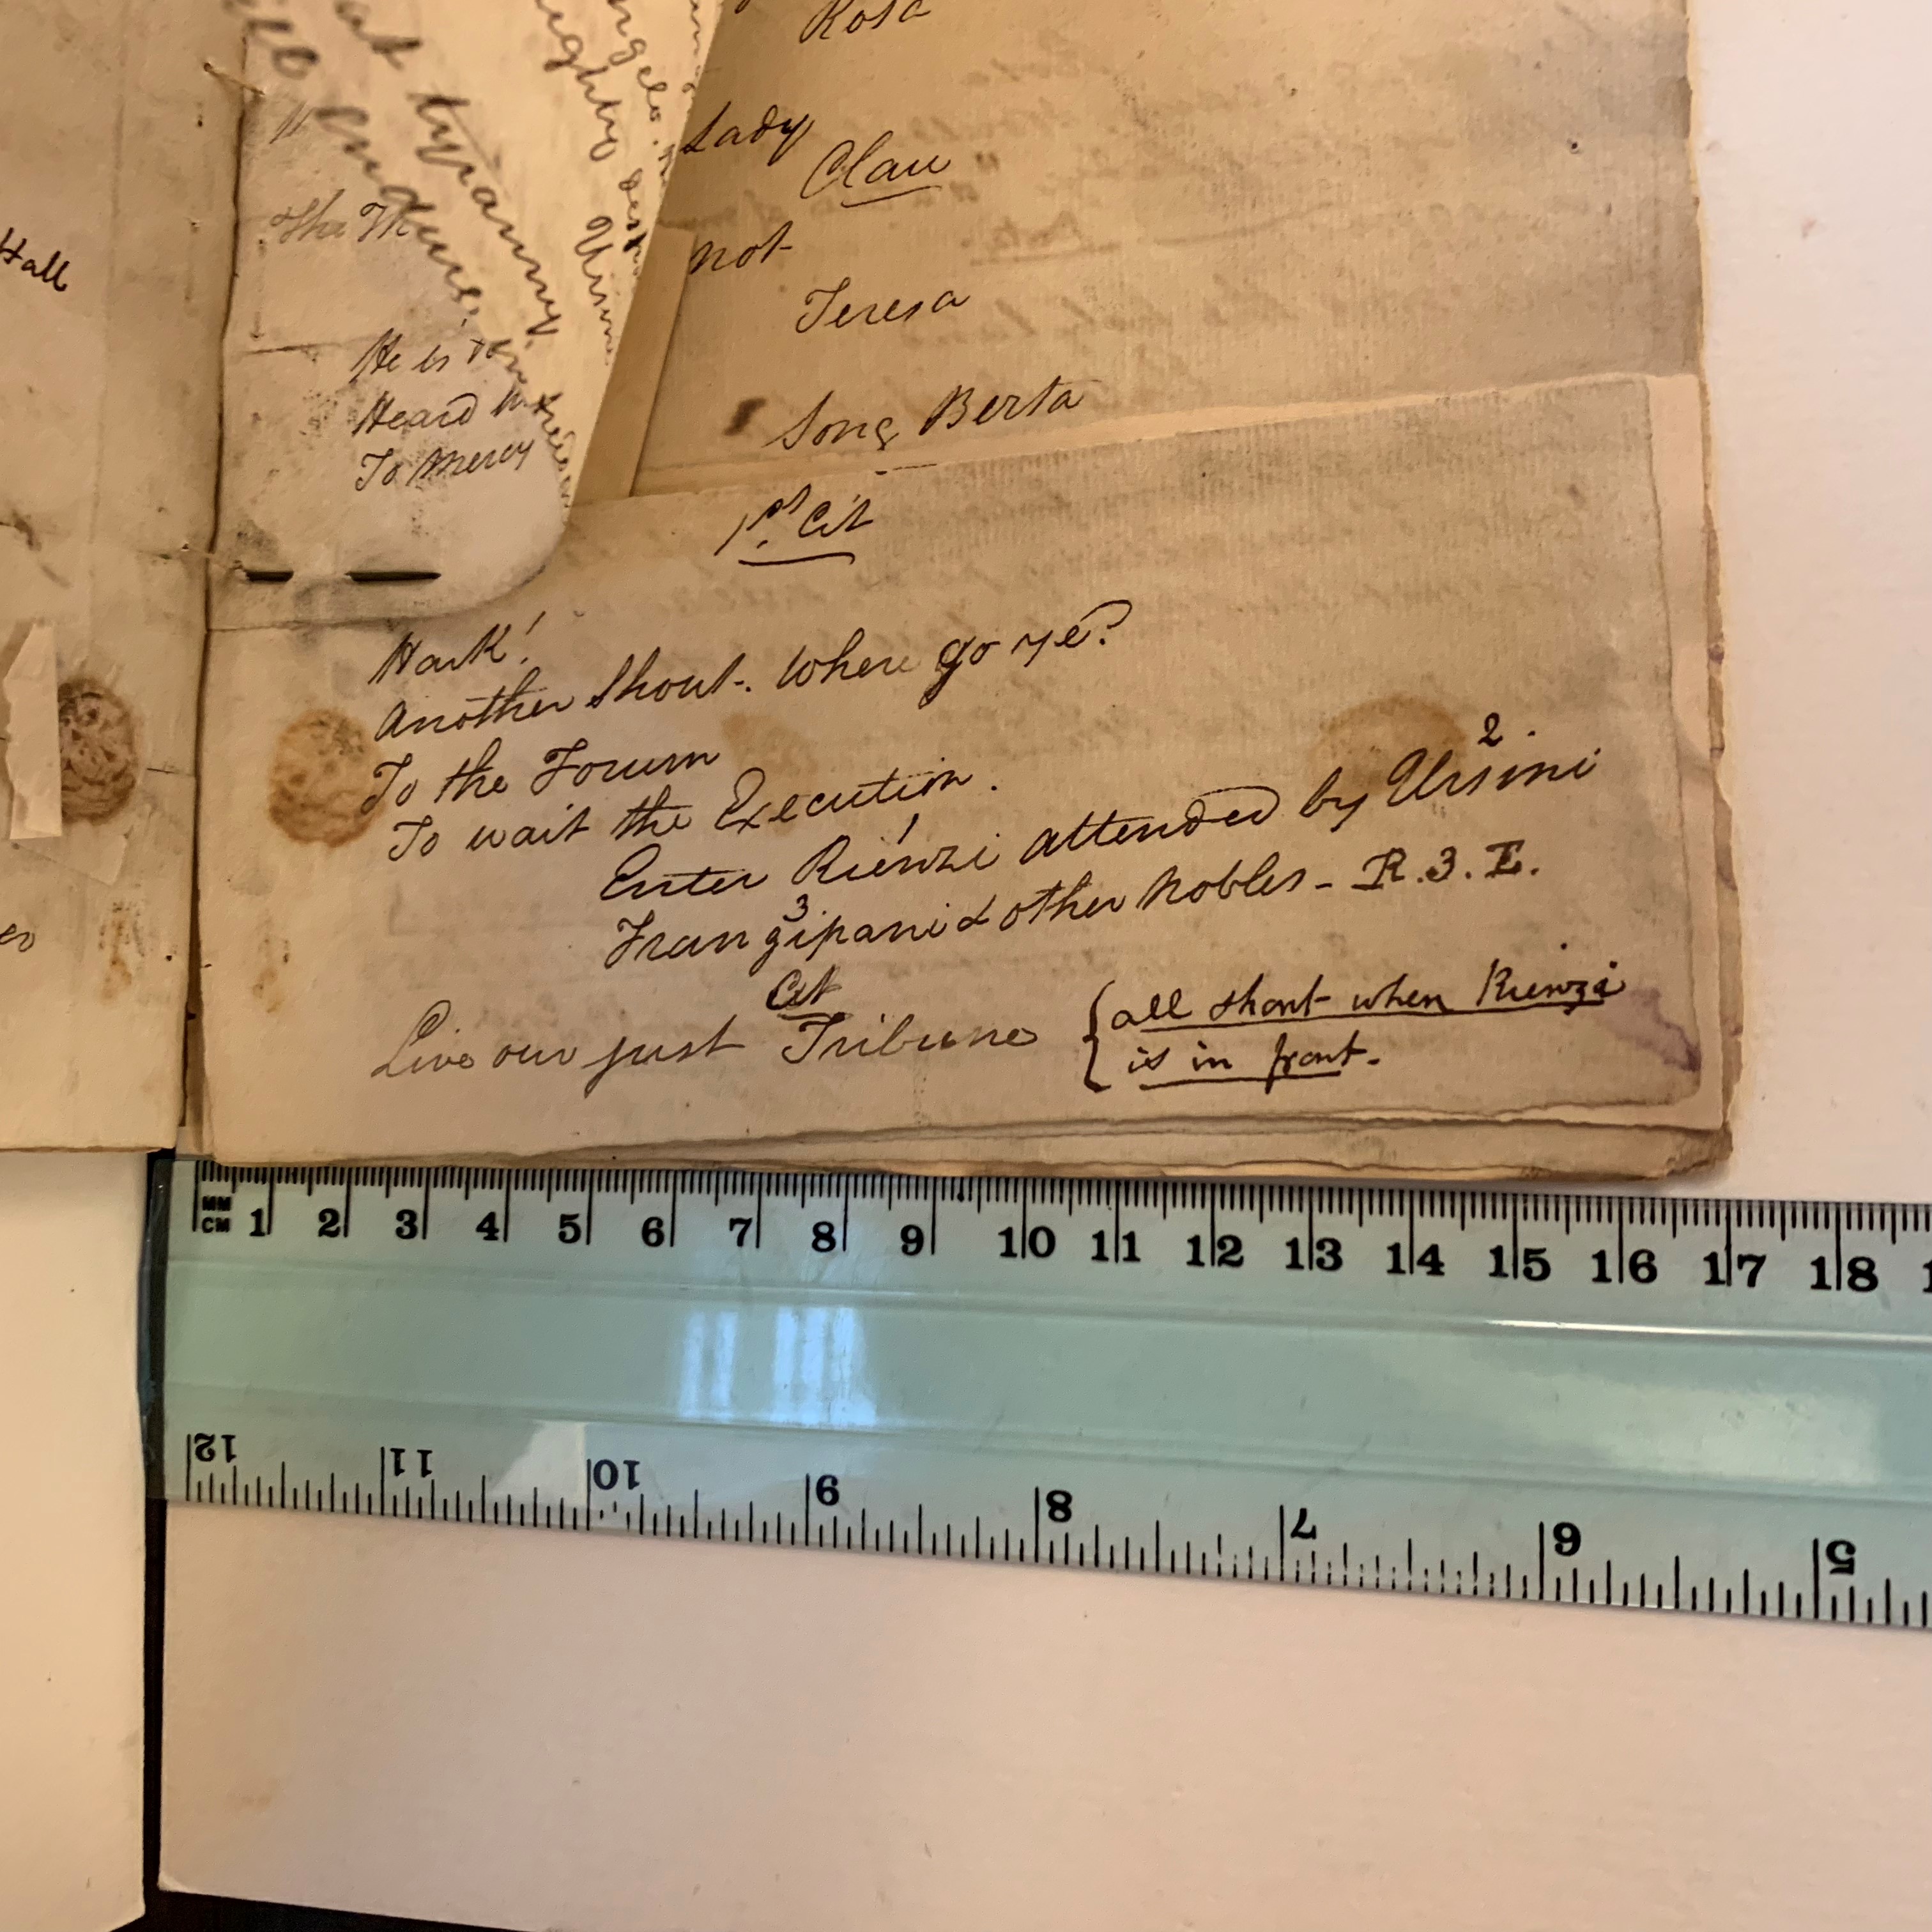 Hall
at tyranny.
endure,
Ursini
The Th
He is to
Heard
To Mercy
Rosa
Lady
Clau
not
Teresa
Song Berta
1st Cit
Hark!
Another Shout. Where go ye?
To the Forum
To wait the Execution.
1 2.
Enter Rienzi attended by Ursini
3
Frangipani & other Nobles - R. 3. E.
Cit
Live our just Tribune
{ all shout when Rienzi
is in front.
MM
CM 1 2 3 4 5 6 7 8 9 10 11 12 13 14 15 16 17 18
12 11 10 9 8 7 6 5